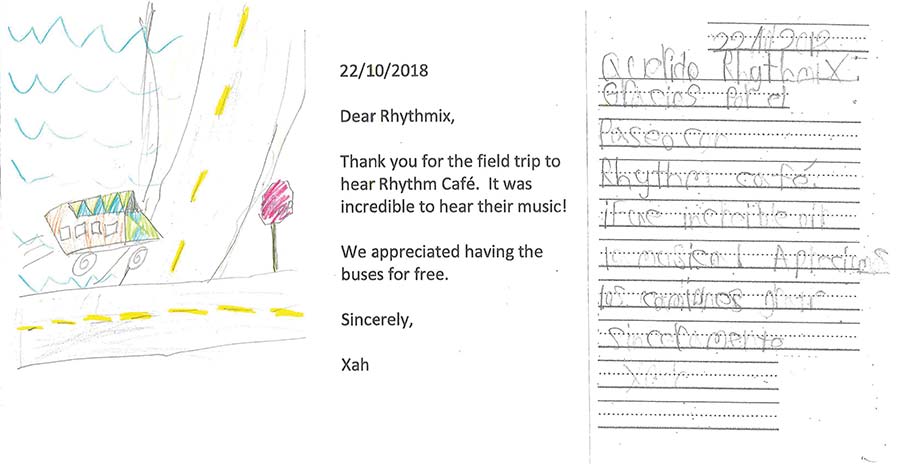 22/10/2018
Dear Rhythmix,
Thank you for the field trip to
hear Rhythm Café. It was
incredible to hear their music!
We appreciated having the
buses for free.
Sincerely,
Xah
Querido Rhythmix
Gracias Por el
Paseo
Rhythm café.
increible
la musica!
los camiones
sinceramente
Xah